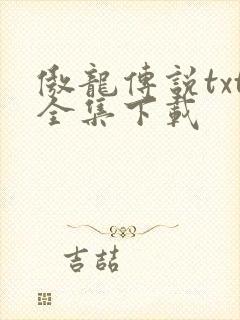 傲龍傳說txt
全集下載
吉喆